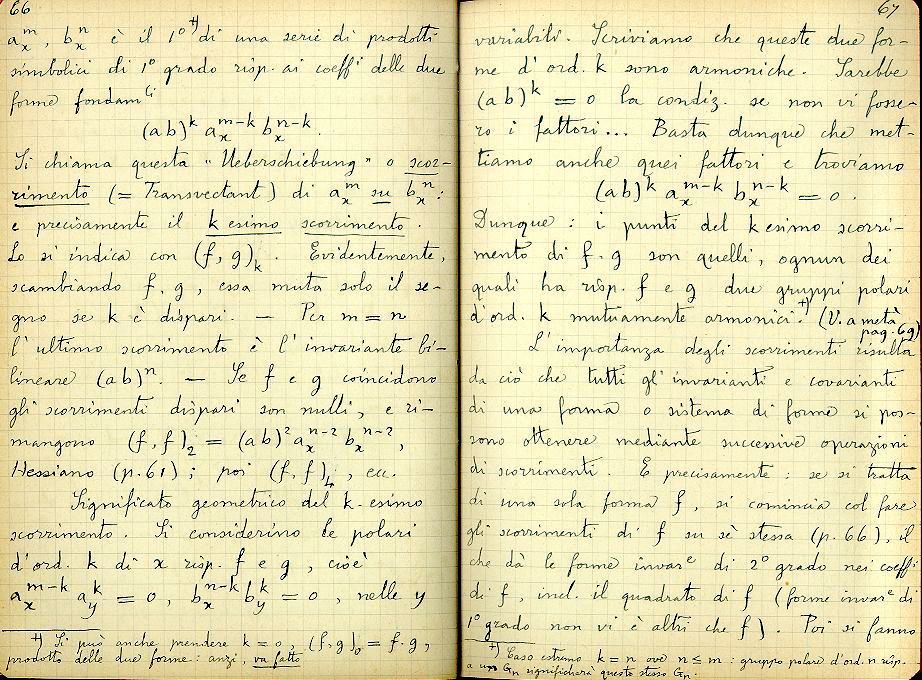 66
a_x^m, b_x^n è il 1º +) di una serie di prodotti
simbolici di 1º grado risp. ai coeffi delle due
forme fondam^li
(ab)^k a_x^{m-k} b_x^{n-k}.
Si chiama questa "Ueberschiebung" o scor-
rimento (= Transvectant) di a_x^m su b_x^n :
e precisamente il k esimo scorrimento.
Lo si indica con (f, g)_k. Evidentemente,
scambiando f, g, essa muta solo il se-
gno se k è dispari. — Per m = n
l'ultimo scorrimento è l'invariante bi-
lineare (ab)^n. — Se f e g coincidono
gli scorrimenti dispari son nulli, e ri-
mangono (f, f)_2 = (ab)^2 a_x^{n-2} b_x^{n-2},
Hessiano (p. 61); poi (f, f)_4, ecc.
Significato geometrico del k-esimo
scorrimento. Si considerino le polari
d'ord. k di x risp. f e g, cioè
a_x^{m-k} a_y^k = 0, b_x^{n-k} b_y^k = 0, nelle y
+) Si può anche prendere k = 0, (f, g)_0 = f·g,
prodotto delle due forme: anzi, va fatto
67
variabili. Scriviamo che queste due for-
me d'ord. k sono armoniche. Sarebbe
(ab)^k = 0 la condiz. se non vi fosse-
ro i fattori... Basta dunque che met-
tiamo anche quei fattori e troviamo
(ab)^k a_x^{m-k} b_x^{n-k} = 0.
Dunque: i punti del k esimo scorri-
mento di f·g son quelli, ognun dei
quali ha risp. f e g due gruppi polari
d'ord. k mutuamente armonici. +) (V. a metà
pag. 69)
L'importanza degli scorrimenti risulta
da ciò che tutti gl'invarianti e covarianti
di una forma o sistema di forme si pos-
sono ottenere mediante successive operazioni
di scorrimenti. E precisamente: se si tratta
di una sola forma f, si comincia col fare
gli scorrimenti di f su sè stessa (p. 66), il
che dà le forme invar^e di 2º grado nei coeffi
di f, incl. il quadrato di f (forme invar^e di
1º grado non vi è altri che f). Poi si fanno
+) Caso estremo k = n ove n ≤ m: gruppo polare d'ord. n risp.
a un G_n significherà questo stesso G_n.